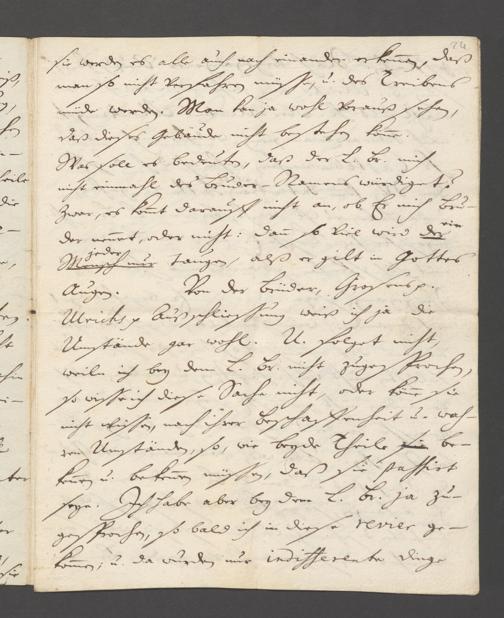 24
sie werden es alle auch nach einander erkennen, daß
man so nicht verfahren müße, u. des Treibens
müde werden. Man kan ja wohl voraus sehen,
daß dieses Gebäude nicht bestehen könne.
Was soll es bedeuten, daß der L. Br. mich
nicht einmahl des Bruder-Namens würdiget?
Zwar, es komt darauf nicht an, ob Er mich Bru-
der nennet, oder nicht: dann so viel wird der ein
jeder
Mensch nur taugen, alß er gilt in Gottes
Augen. Von der Brüder,
Ulrichs Ausschließung weiß ich ja die
Umstände gar wohl. U. folget nicht,
weilen ich bey dem L. Br. nicht zugesprochen,
so wiße ich diese Sache nicht, oder könne sie
nicht wißen, nach ihrer Beschaffenheit u. wah-
ren Umständen, so, wie beyde Theile be-
kennen u. bekennen müßen, daß sie passirt
seye. Ich habe aber bey dem L. Br. ja zu-
gesprochen, so bald ich in diese revier ge-
kommen; u. da wurden nur indifferente Dinge